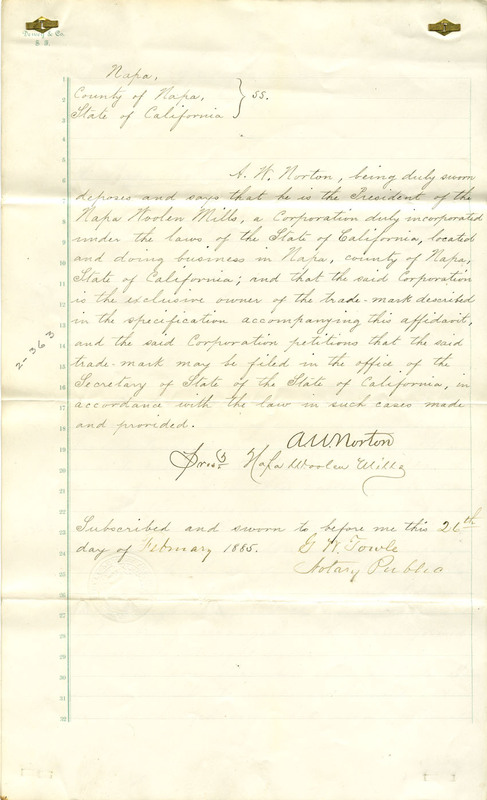 Napa,
County of Napa, } ss.
State of California
A. W. Norton, being duly sworn
deposes and says that he is the President of the
Napa Woolen Mills, a Corporation duly incorporated
under the laws of the State of California, located
and doing business in Napa, county of Napa,
State of California; and that the said Corporation
is the exclusive owner of the trade-mark described
in the specification accompanying this affidavit,
and the said Corporation petitions that the said
trade-mark may be filed in the office of the
Secretary of State of the State of California, in
accordance with the law in such cases made
and provided.
A W Norton
Prest. Napa Woolen Mills
Subscribed and sworn to before me this 26th
day of February 1885. G W. Towle
Notary Public
2-363
1
2
3
4
5
6
7
8
9
10
11
12
13
14
15
16
17
18
19
20
21
22
23
24
25
26
27
28
29
30
31
32